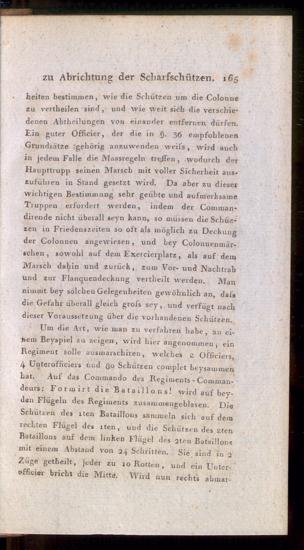 zu Abrichtung der Scharfschützen. 165
heiten bestimmen, wie die Schützen um die Colonne
zu vertheilen sind, und wie weit sich die verschie-
denen Abtheilungen von einander entfernen dürfen.
Ein guter Officier, der die in §. 36 empfohlenen
Grundsätze gehörig anzuwenden weiss, wird auch
in jedem Falle die Massregeln treffen, wodurch der
Haupttrupp seinen Marsch mit voller Sicherheit aus-
zuführen in Stand gesetzt wird. Da aber zu dieser
wichtigen Bestimmung sehr geübte und aufmerksame
Truppen erfordert werden, indem der Comman-
dirende nicht überall seyn kann, so müssen die Schüz-
zen in Friedenszeiten so oft als möglich zu Deckung
der Colonnen angewiesen, und bey Colonnenmär-
schen, sowohl auf dem Exercierplatz, als auf dem
Marsch dahin und zurück, zum Vor- und Nachtrab
und zur Flanquendeckung vertheilt werden. Man
nimmt bey solchen Gelegenheiten gewöhnlich an, dass
die Gefahr überall gleich gross sey, und verfügt nach
dieser Voraussetzung über die vorhandenen Schützen.
Um die Art, wie man zu verfahren habe, an ei-
nem Beyspiel zu zeigen, wird hier angenommen, ein
Regiment solle ausmarschiren, welches 2 Officiers,
4 Unterofficiers und 80 Schützen complet beysammen
hat. Auf das Commando des Regiments-Comman-
deurs: Formirt die Bataillons! wird auf bey-
den Flügeln des Regiments zusammengeblasen. Die
Schützen des 1ten Bataillons sammeln sich auf dem
rechten Flügel des 1ten, und die Schützen des 2ten
Bataillons auf dem linken Flügel des 2ten Bataillons
mit einem Abstand von 24 Schritten. Sie sind in 2
Züge getheilt, jeder zu 10 Rotten, und ein Unter-
officier bricht die Mitte. Wird nun rechts abmar-